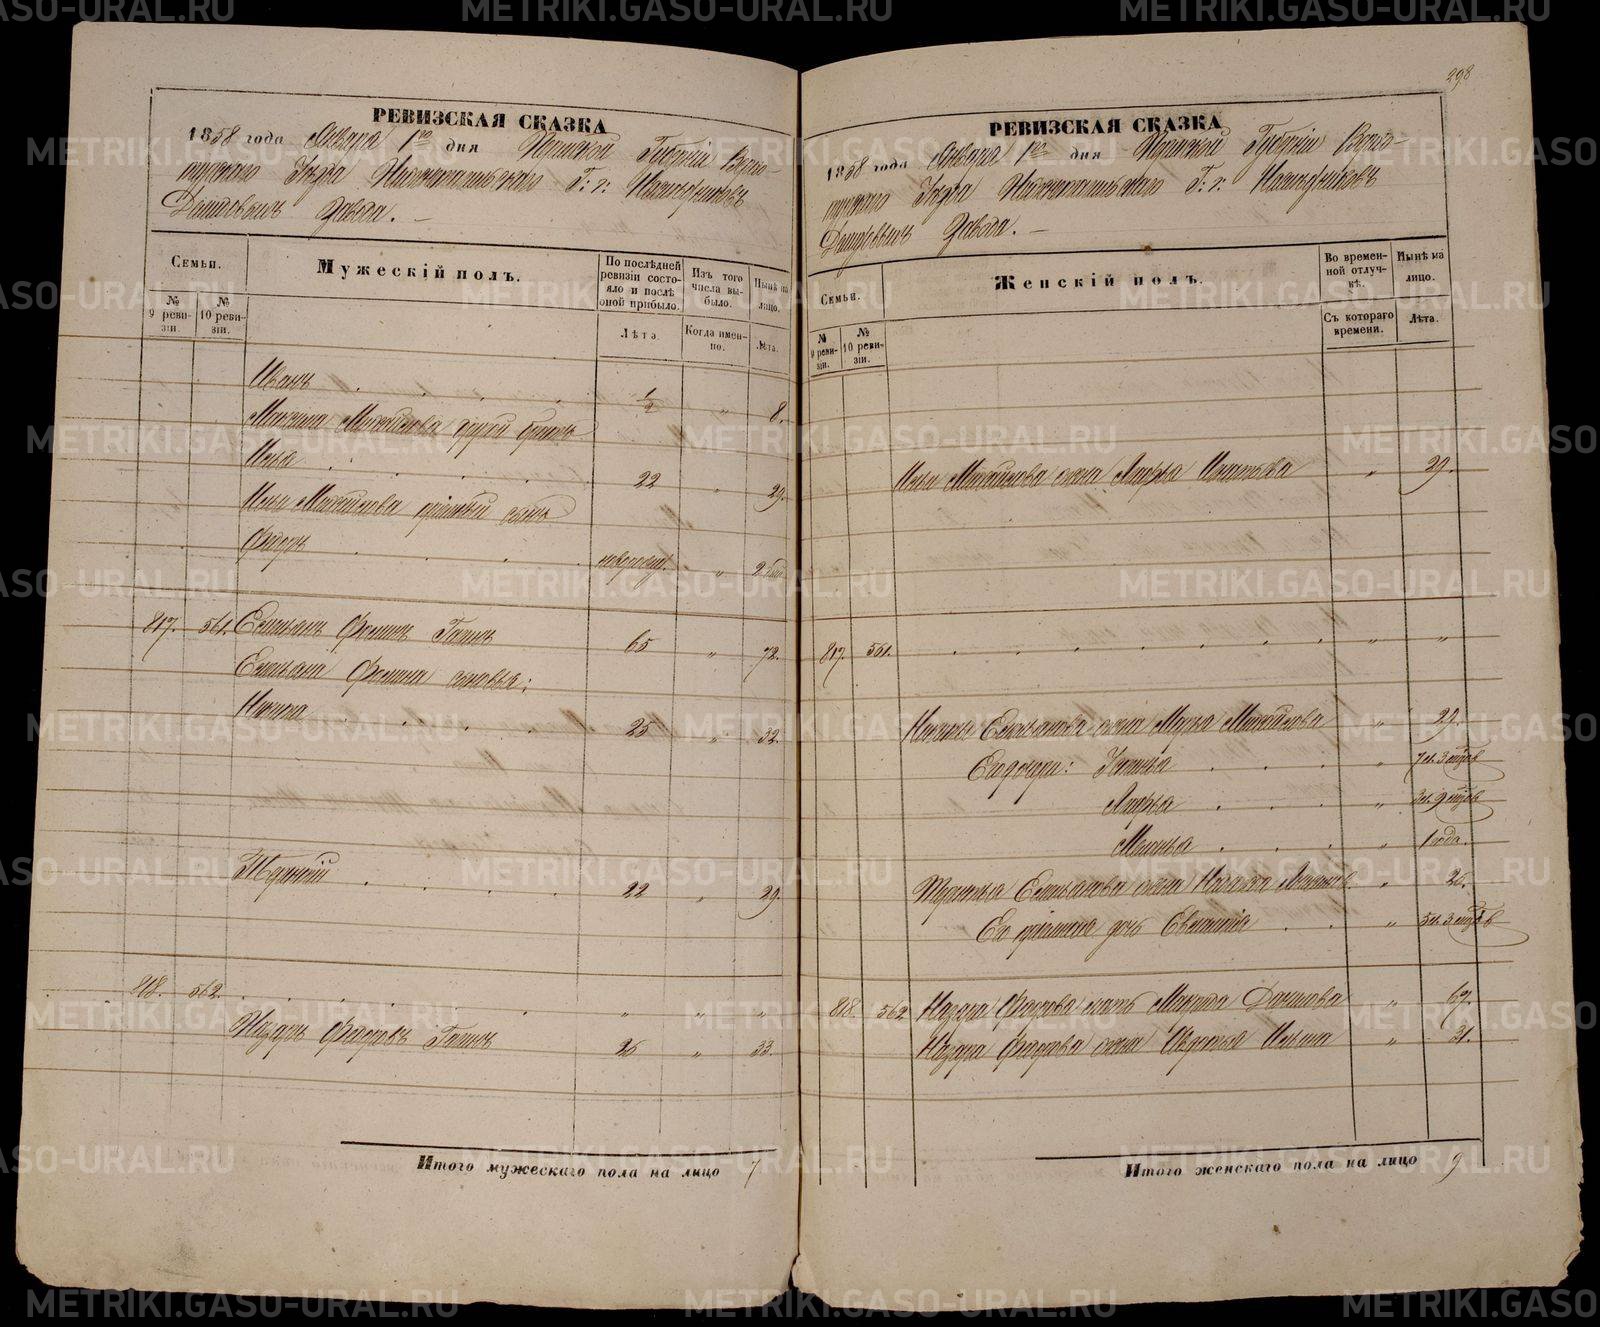 298
РЕВИЗСКАЯ СКАЗКА
1858 года Января 1го дня Пермской Губерніи Верхо-
турскаго Уѣзда Нижнетагильскаго Г: г: Наслѣдниковъ
Демидовыхъ Завода. —
Семьи.
№ 9 ревизіи.
№ 10 ревизіи.
Мужескій полъ.
По послѣдней ревизіи состояло и послѣ оной прибыло.
Изъ того числа выбыло.
Нынѣ на лицо.
Лѣта.
Когда именно.
Лѣта.
Иванъ 1/2 " 8.
Михайлова другой сынъ
Илья 22 " 29.
Ильи Михайлова сынъ
Федоръ новорожд. "
817. 561. Емельянъ Фоминъ 65 " 72.
Емельяна Фомина сыновья:
Никита 25 " 32.
Терентій 22 " 29.
818. 562. " " "
Назаръ Федоровъ 26 " 33.
Итого мужескаго пола на лицо 7
РЕВИЗСКАЯ СКАЗКА
1858 года Января 1го дня Пермской Губерніи Верхо-
турскаго Уѣзда Нижнетагильскаго Г: г: Наслѣдниковъ
Демидовыхъ Завода. —
Семьи.
№ 9 ревизіи.
№ 10 ревизіи.
Женскій полъ.
Во временной отлучкѣ.
Нынѣ на лицо.
Съ котораго времени.
Лѣта.
Ильи Михайлова жена Марья Игнатьева " 29.
817. 561. " "
Никиты Емельянова жена Марья Михайлова "
Его дочери: Устинья " 7 л. 3 мѣсяц.
Марья " 3 л. 9 мѣсяц.
" 1 года.
Терентья Емельянова жена " 26.
Его дочь Евгенія " 5 л. 3 мѣсяц.
818. 562 Назара Федорова мать Данилова " 67.
Назара Федорова жена Ильина " 31.
Итого женскаго пола на лицо 9
METRIKI.GASO-URAL.RU